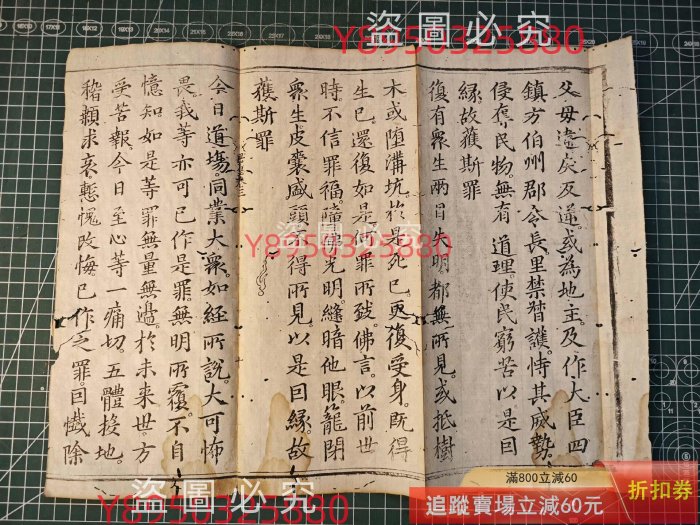 父母違戾反逆。或為地主。及作大臣四
鎮方伯州郡令長。里禁督護。恃其威勢。
侵奪民物。無有道理。使民窮苦以是囙
緣。故獲斯罪
復有衆生兩目失明都無所見或抵樹
木或墮溝坑於是死已更復受身。既得
生已。還復如是何罪所致佛言。以前世
時。不信罪福。障佛光明。縫暗他眼。籠閉
衆生皮囊盛頭不得所見以是囙緣。故
獲斯罪
今日道場。同業大衆。如經所說。大可怖
畏。我等亦可已作是罪。無明所覆。不自
憶知如是等罪無量無邊。於未來世。方
受苦報。今日至心等一痛切。五體接地。
稽顙求哀慙愧改悔已作之罪。囙懺除
盜圖必究
Y8950325880
盜圖必究
Y8950325880
盜圖必究
Y8950325880
滿800立減60
追蹤賣場立減60元
折扣券